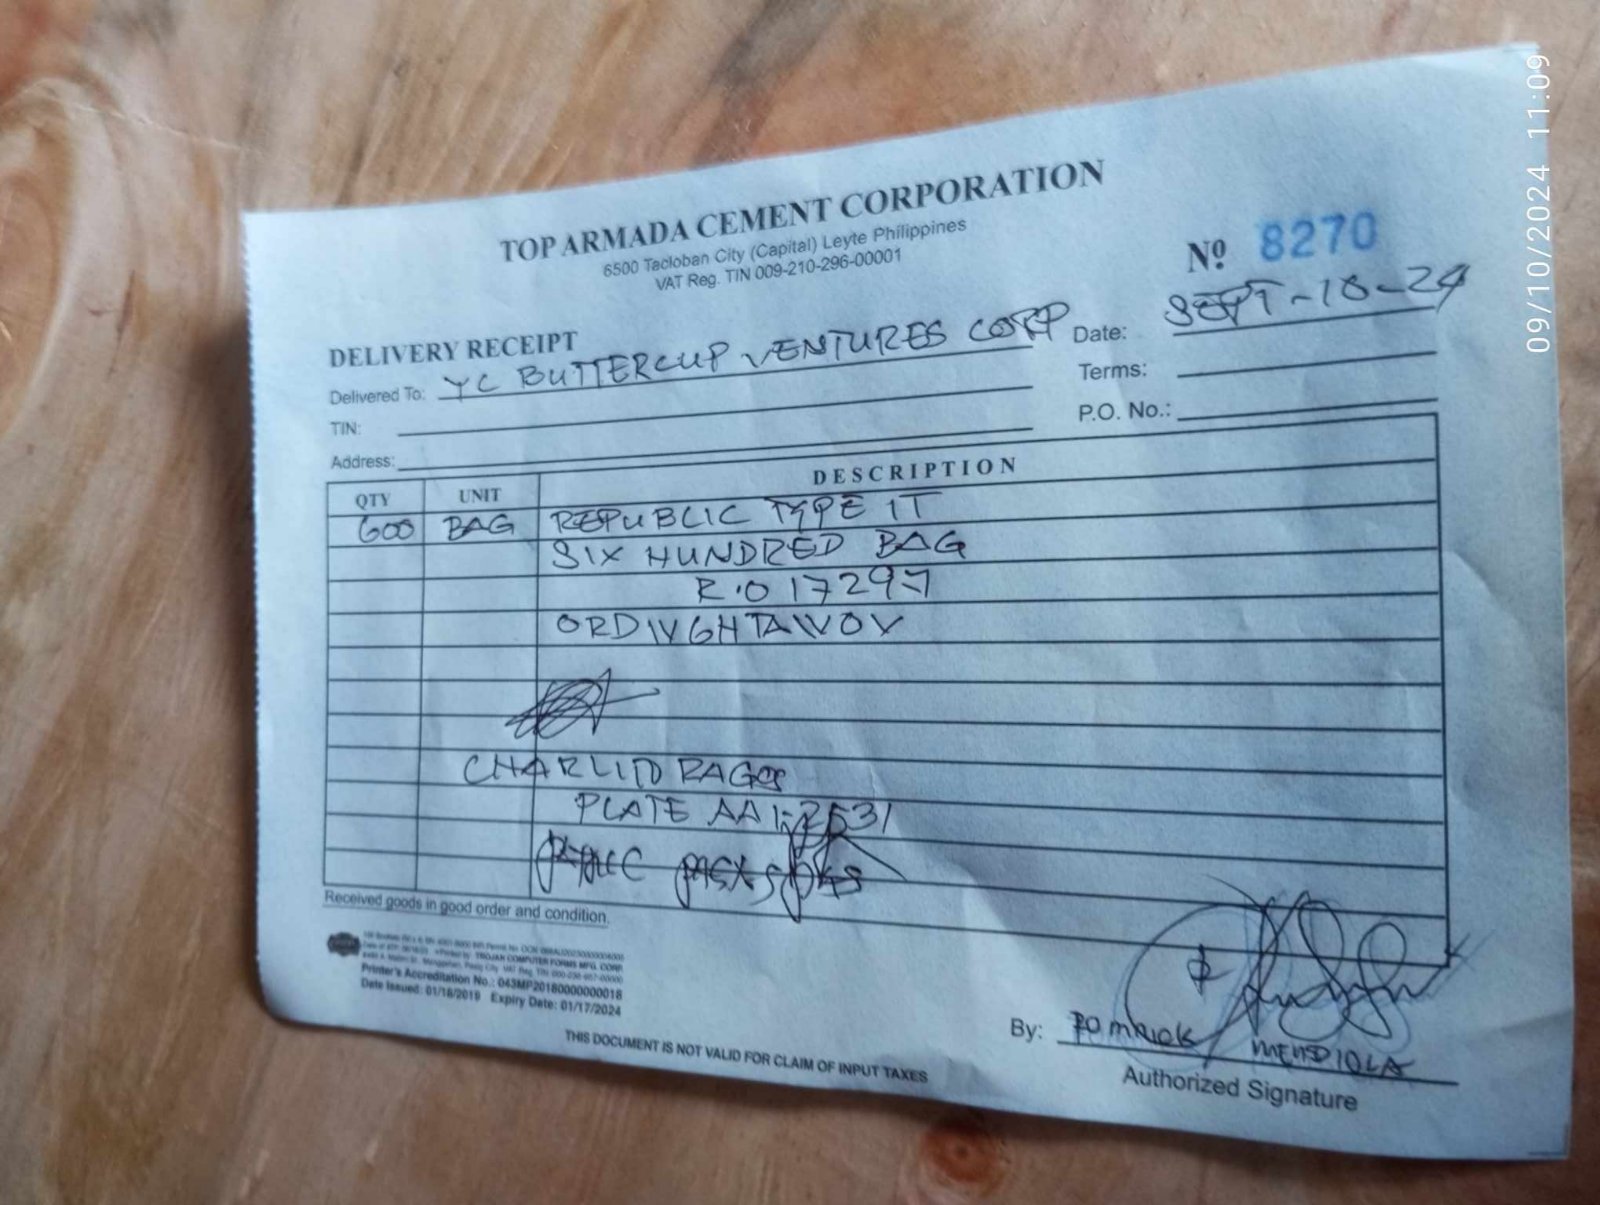 09/10/2024 11:09
TOP ARMADA CEMENT CORPORATION
6500 Tacloban City (Capital) Leyte Philippines
VAT Reg. TIN 009-210-296-00001
Nº 8270
DELIVERY RECEIPT
Date: SEPT-10-24
Delivered To: YC BUTTERCUP VENTURES CORP
Terms:
TIN:
P.O. No.:
Address:
QTY UNIT DESCRIPTION
600 BAG REPUBLIC TYPE IT
SIX HUNDRED BAG
R.O 17297
PLATE AA1-2531
Received goods in good order and condition.
TROJAN COMPUTER FORMS MFG. CORP.
Printer's Accreditation No.: 043MP20180000000018
Date Issued: 01/18/2019 Expiry Date: 01/17/2024
THIS DOCUMENT IS NOT VALID FOR CLAIM OF INPUT TAXES
By: ROMRICK MENDIOLA
Authorized Signature